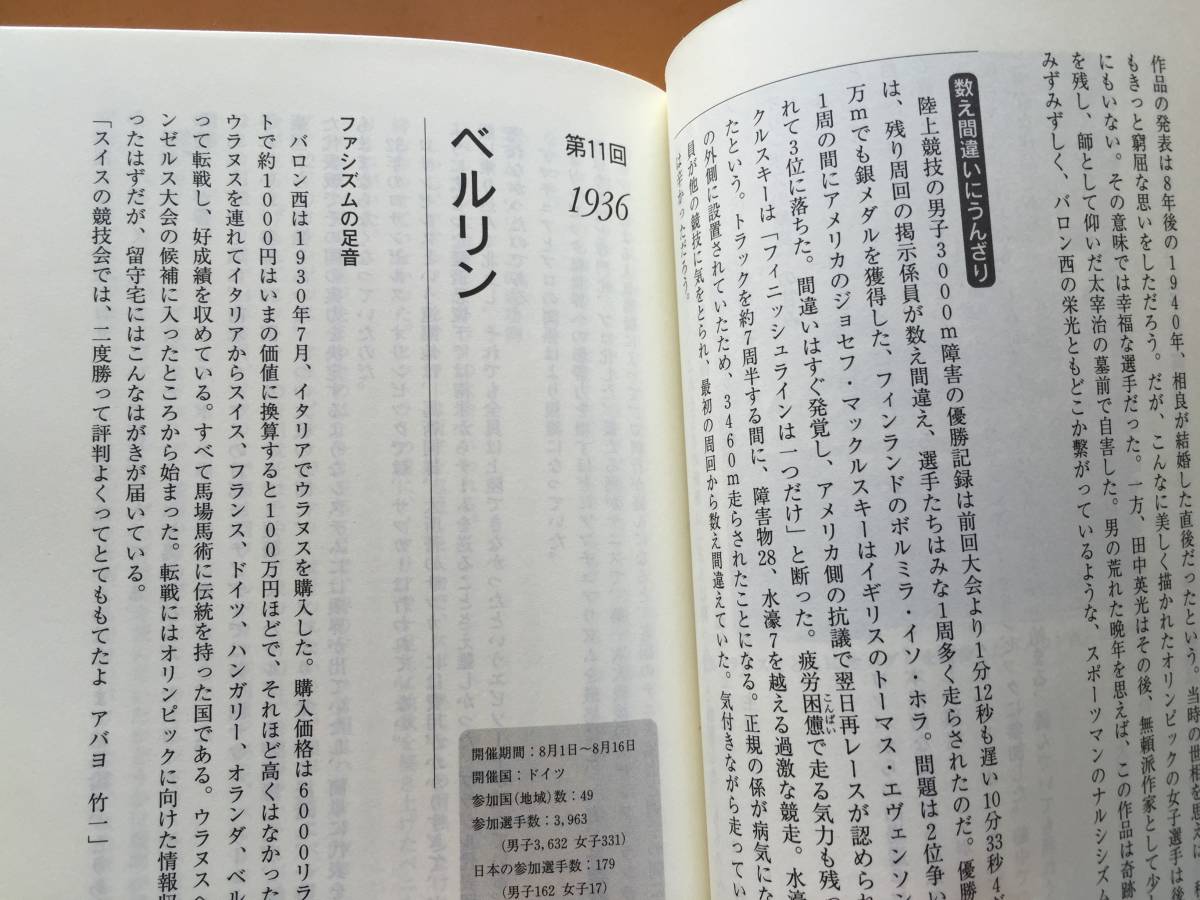 作品の発表は8年後の1940年、相良が結婚した直後だったという。当時の世相を思
もきっと窮屈な思いをしただろう。だが、こんなに美しく描かれたオリンピックの女子選手は後
にもいない。その意味では幸福な選手だった。一方、田中英光はその後、無頼派作家として少
を残し、師として仰いだ太宰治の墓前で自害した。男の荒れた晩年を思えば、この作品は奇跡
みずみずしく、バロン西の栄光ともどこか繋がっているような、スポーツマンのナルシシズム
数え間違いにうんざり
陸上競技の男子3000m障害の優勝記録は前回大会より1分12秒も遅い10分33秒4
は、残り周回の掲示係員が数え間違え、選手たちはみな1周多く走らされたのだ。優勝
万mでも銀メダルを獲得した、フィンランドのボルミラ・イソ・ホラ。問題は2位争い
1周の間にアメリカのジョセフ・マックルスキーはイギリスのトーマス・エヴェンソン
れて3位に落ちた。間違いはすぐ発覚し、アメリカ側の抗議で翌日再レースが認められ
クルスキーは「フィニッシュラインは一つだけ」と断った。疲労困憊で走る気力も残っ
こんぱい
たという。トラックを約7周半する間に、障害物28、水濠7を越える過激な競走。水濠
の外側に設置されていたため、3460m走らされたことになる。正規の係が病気にな
員が他の競技に気をとられ、最初の周回から数え間違えていた。気付きながら走ってい
は辛かっただろう。
第11回
1936
ベルリン
ファシズムの足音
バロン西は1930年7月、イタリアでウラヌスを購入した。購入価格は6000リラ
トで約1000円はいまの価値に換算すると100万円ほどで、それほど高くはなかった
ウラヌスを連れてイタリアからスイス、フランス、ドイツ、ハンガリー、オランダ、ベル
って転戦し、好成績を収めている。すべて馬場馬術に伝統を持った国である。ウラヌスへ
ンゼルス大会の候補に入ったところから始まった。転戦にはオリンピックに向けた情報収
ったはずだが、留守宅にはこんなはがきが届いている。
「スイスの競技会では、二度勝って評判よくってとてももてたよ アバヨ 竹一」
開催期間：8月1日〜8月16日
開催国：ドイツ
参加国(地域)数：49
参加選手数：3,963
(男子3,632 女子331)
日本の参加選手数：179
(男子162 女子17)